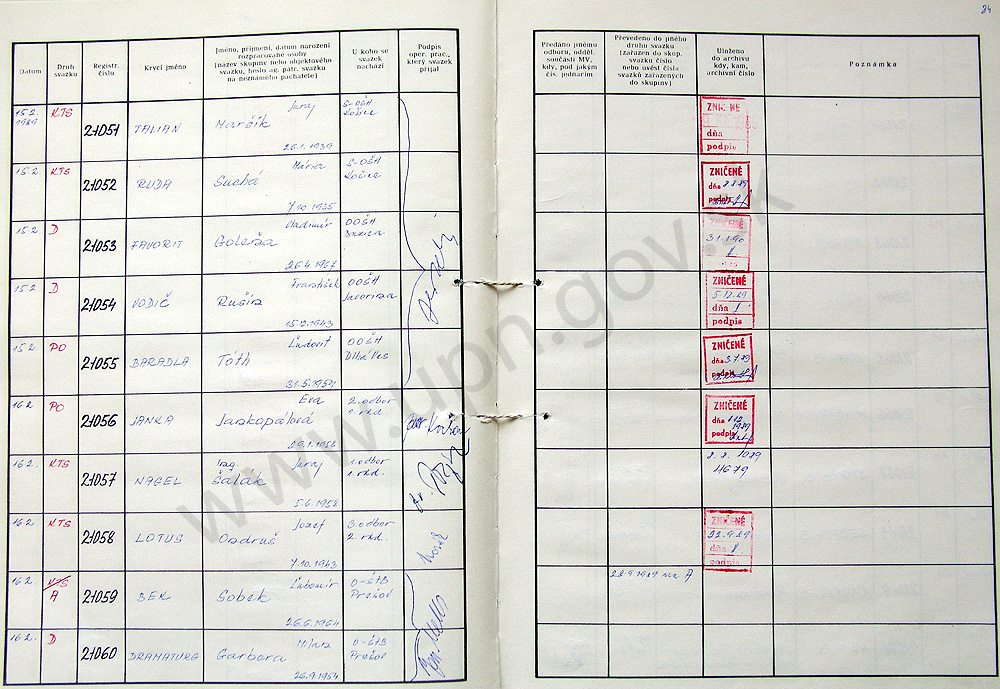 84
Datum
Druh svazku
Registr. číslo
Krycí jméno
Jméno, příjmení, datum narození rozpracované osoby (název skupiny nebo objektového svazku, heslo ag. pátr. svazku na neznámého pachatele)
U koho se svazek nachází
Podpis oper. prac., který svazek přijal
Předáno jinému odboru, odděl. součásti MV, kdy, pod jakým čís. jednacím
Převedeno do jiného druhu svazku (zařazen do skup. svazku číslo nebo uvést čísla svazků zařazených do skupiny)
Uloženo do archivu kdy, kam, archivní číslo
Poznámka
15.2. 1989 KTS 21051 TALIAN Juraj Marsík 26.1.1939 S-OŠH Košice
ZNIČENÉ dňa podpis
15.2. KTS 21052 RUDA Mária Suchá 7.10.1935 S-OŠH Košice
ZNIČENÉ dňa 2.8.89 podpis
15.2. D 21053 FAVORIT Vladimír 26.4.1957 OOŠH
31.1.90
15.2. D 21054 VODIČ František 15.12.1943 OOŠH Javorina
ZNIČENÉ 5.12.89 dňa podpis
15.2. PO 21055 BARADLA Ľudovít Tóth 31.5.1954 OOŠH Dlhá Ves
ZNIČENÉ dňa 3.7.89 podpis
16.2. PO 21056 JANKA Eva 29.1.1956 2. odbor
ZNIČENÉ dňa 1989 podpis
16.2. KTS 21057 NAGEL Ing. Juraj Šalák 5.6.1954 1. odbor 1. odd.
1989
4679
16.2. KTS 21058 LOTUS Jozef Ondruš 7.10.1943 3. odbor 2. odd.
ZNIČENÉ 22.9.89 dňa podpis
16.2. KTS A 21059 BEK Ľubomír Sobek 26.6.1964 O-ŠTB Prešov
28.9.1989 na A
16.2. D 21060 DRAMATURG Milan Garbera 26.9.1954 O-ŠTB Prešov
www.upn.gov.sk